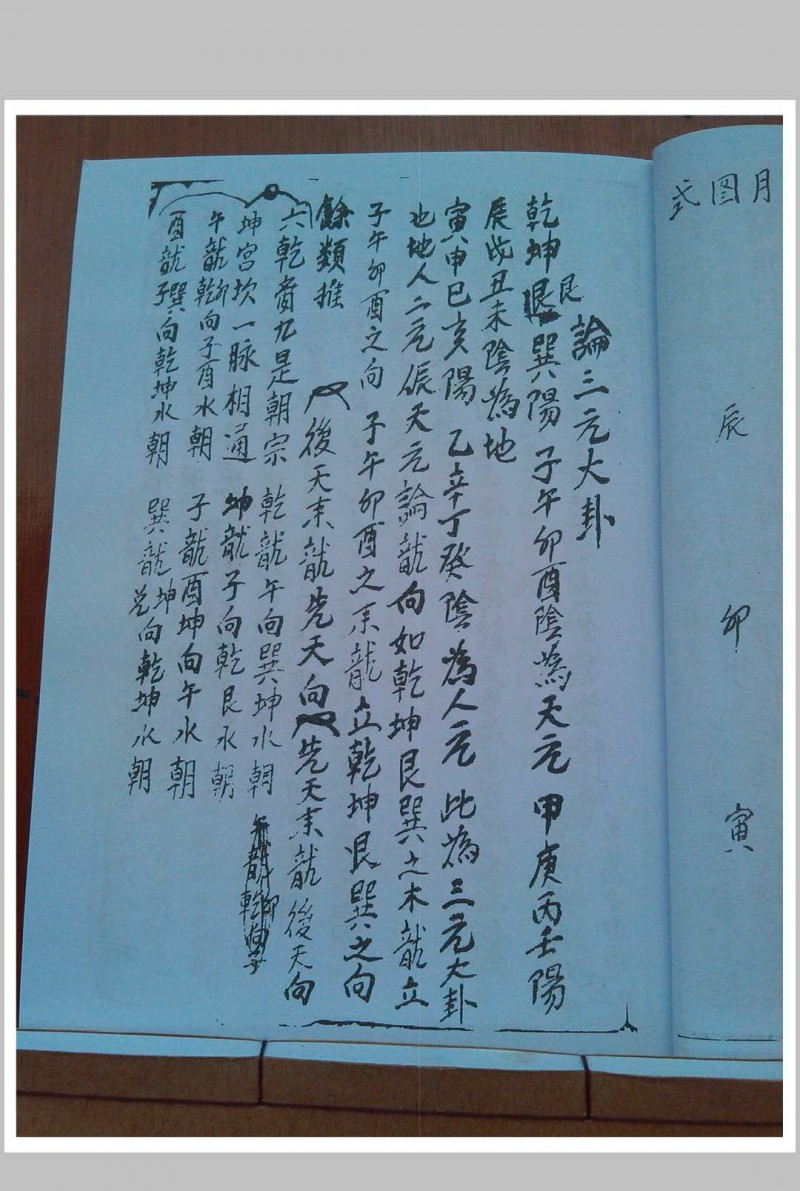 月图式
辰 卯 寅
論三元大卦
艮
乾坤巽陽 子午卯酉陰為天元 甲庚丙壬陽
辰戌丑未陰為地
寅申巳亥陽 乙辛丁癸陰為人元 此為三元大卦
也地人二元依天元論龍向如乾坤艮巽之木龍立
子午卯酉之向 子午卯酉之来龍立乾坤艮巽之向
餘類推 後天来龍先天向 先天来龍後天向
六乾賓九是朝宗 乾龍午向巽坤水朝
坤宫坎一脉相通 坤龍子向乾艮水朝
午龍乾卯向子酉水朝 子龍酉坤向午水朝
酉龍巽子向乾坤水朝 巽龍坤兑向乾坤水朝